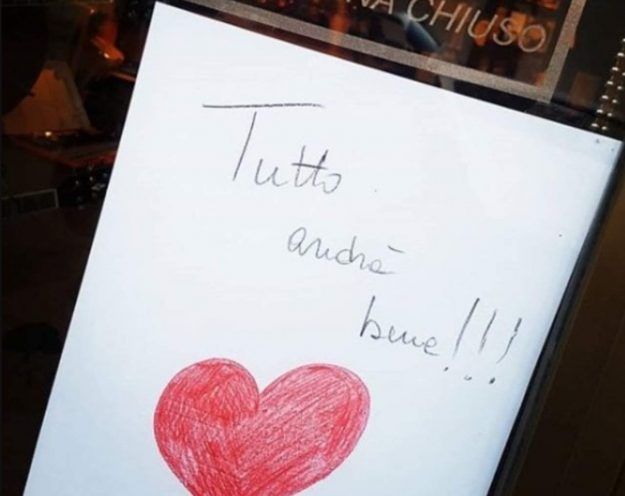 NA CHIUSO
Tutto
andrà
bene!!!